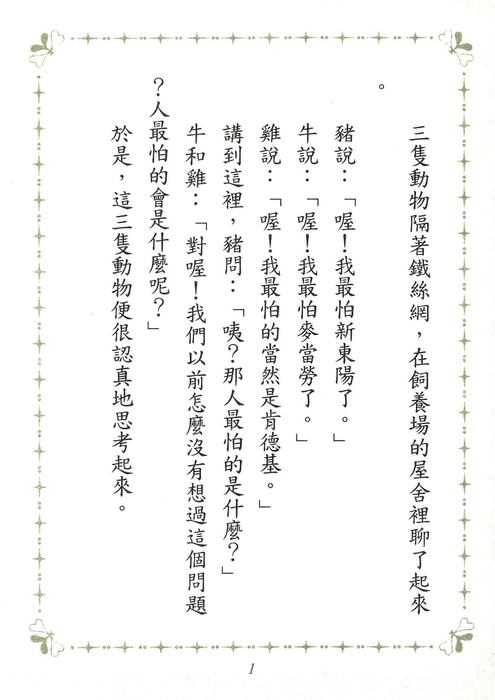 三隻動物隔著鐵絲網，在飼養場的屋舍裡聊了起來
。
豬說：「喔！我最怕新東陽了。」
牛說：「喔！我最怕麥當勞了。」
雞說：「喔！我最怕的當然是肯德基。」
講到這裡，豬問：「咦？那人最怕的是什麼？」
牛和雞：「對喔！我們以前怎麼沒有想過這個問題
？人最怕的會是什麼呢？」
於是，這三隻動物便很認真地思考起來。
1